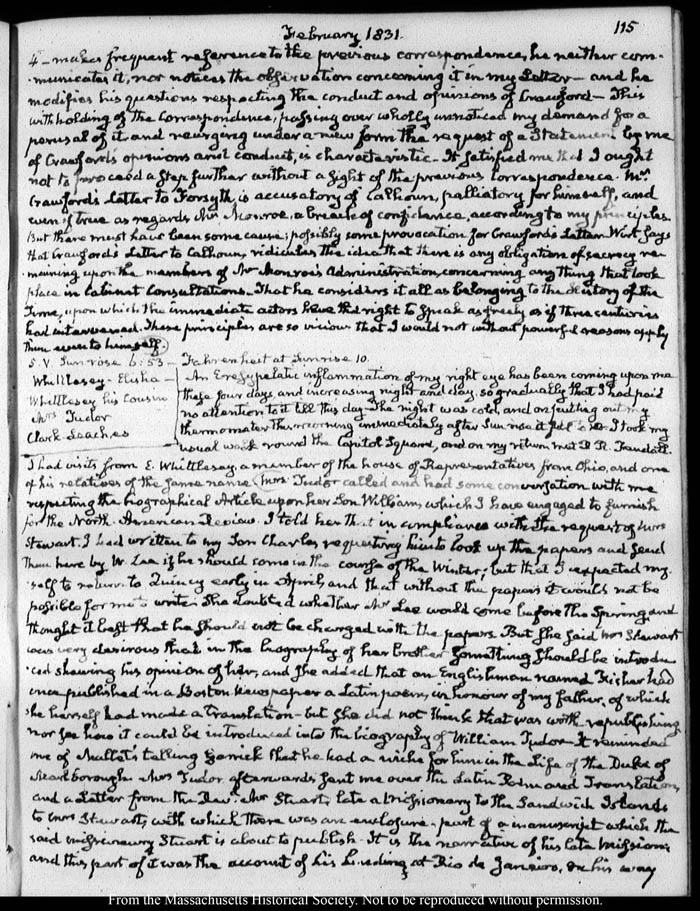 February 1831.
115
4 — makes frequent reference to the previous correspondence, he neither com-
-municates it, nor notices the observation concerning it in my Letter — and he
modifies his questions respecting the conduct and opinions of Crawford — This
withholding of the Correspondence, passing over wholly unnoticed my demand for a
perusal of it and reurging under a new form the request of a Statement by me
of Crawford's opinions and conduct, is characteristic. It satisfied me that I ought
not to proceed a step further without a sight of the previous Correspondence. Mr.
Crawford's Letter to Forsyth, is accusatory of Calhoun, palliatory for himself, and
even if true as regards Mr Monroe, a breach of confidence, according to my principles.
But there must have been some cause; possibly some provocation for Crawford's Letter. Wirt says
that Crawford's Letter to Calhoun, ridicules the idea that there is any obligation of secrecy re-
-maining upon the members of Mr Monroe's Administration, concerning any thing that took
place in Cabinet Consultations. That he considers it all as belonging to the History of the
Time, upon which the immediate actors have the right to speak as freely as if three centuries
had intervened. These principles are so vicious that I would not without powerful reasons apply
them even to himself.
5. V. Sun rose 6:53 — Fahrenheit at Sunrise 10.
Whittlesey Elisha
Whittlesey his Cousin
Mrs Tudor
Clark Leaches
An Eresypelatic inflammation of my right eye has been coming upon me
these four days, and increasing night and day, so gradually that I had paid
no attention to it till this day. The night was cold, and on putting out my
thermometer this morning immediately after Sun rise it fell to 10. I took my
usual walk round the Capitol Square, and on my return met D R. Randall.
I had visits from E. Whittlesey, a member of the house of Representatives from Ohio, and one
of his relatives of the same name. Mrs. Tudor called and had some conversation with me
respecting the biographical Article upon her Son William, which I have engaged to furnish
for the North-American Review. I told her that in compliance with the request of Mrs
Stewart, I had written to my Son Charles, requesting him to look up the papers and send
them here by Mr Lee if he should come in the course of the Winter; but that I expected my-
-self to return to Quincy early in April, and that without the papers it would not be
possible for me to write. She doubted whether Mr Lee would come before the Spring and
thought it best that he should not be charged with the papers. But she said Mrs Stewart
was very desirous that in the biography of her brother something should be introdu-
-ced shewing his opinion of her, and she added that an Englishman named Fisher had
once published in a Boston Newspaper a Latin poem, in honour of my father, of which
she herself had made a translation — but she did not think that was worth republishing
nor see how it could be introduced into the biography of William Tudor. It reminded
me of Mallet's telling Garrick that he had a niche for him in the Life of the Duke of
Marlborough. Mrs Tudor afterwards sent me over the Latin Poem and Translation,
and a Letter from the Revd. Mr Stuart, late a Missionary to the Sandwich Islands
to Mrs Stewart, with which there was an enclosure — part of a manuscript which the
said missionary Stuart is about to publish. It is the narrative of his late Mission;
and this part of it was the account of his landing at Rio de Janeiro, on his way
From the Massachusetts Historical Society. Not to be reproduced without permission.